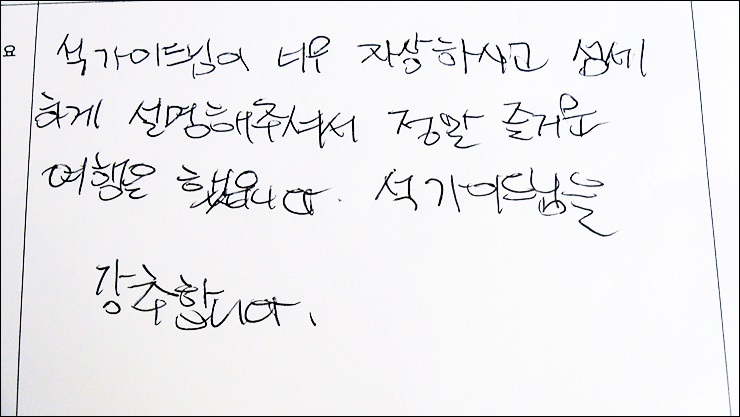 요
석가이드님이 너무 자상하시고 섬세
하게 설명해주셔서 정말 즐거운
여행을 했습니다. 석가이드님을
강추합니다.